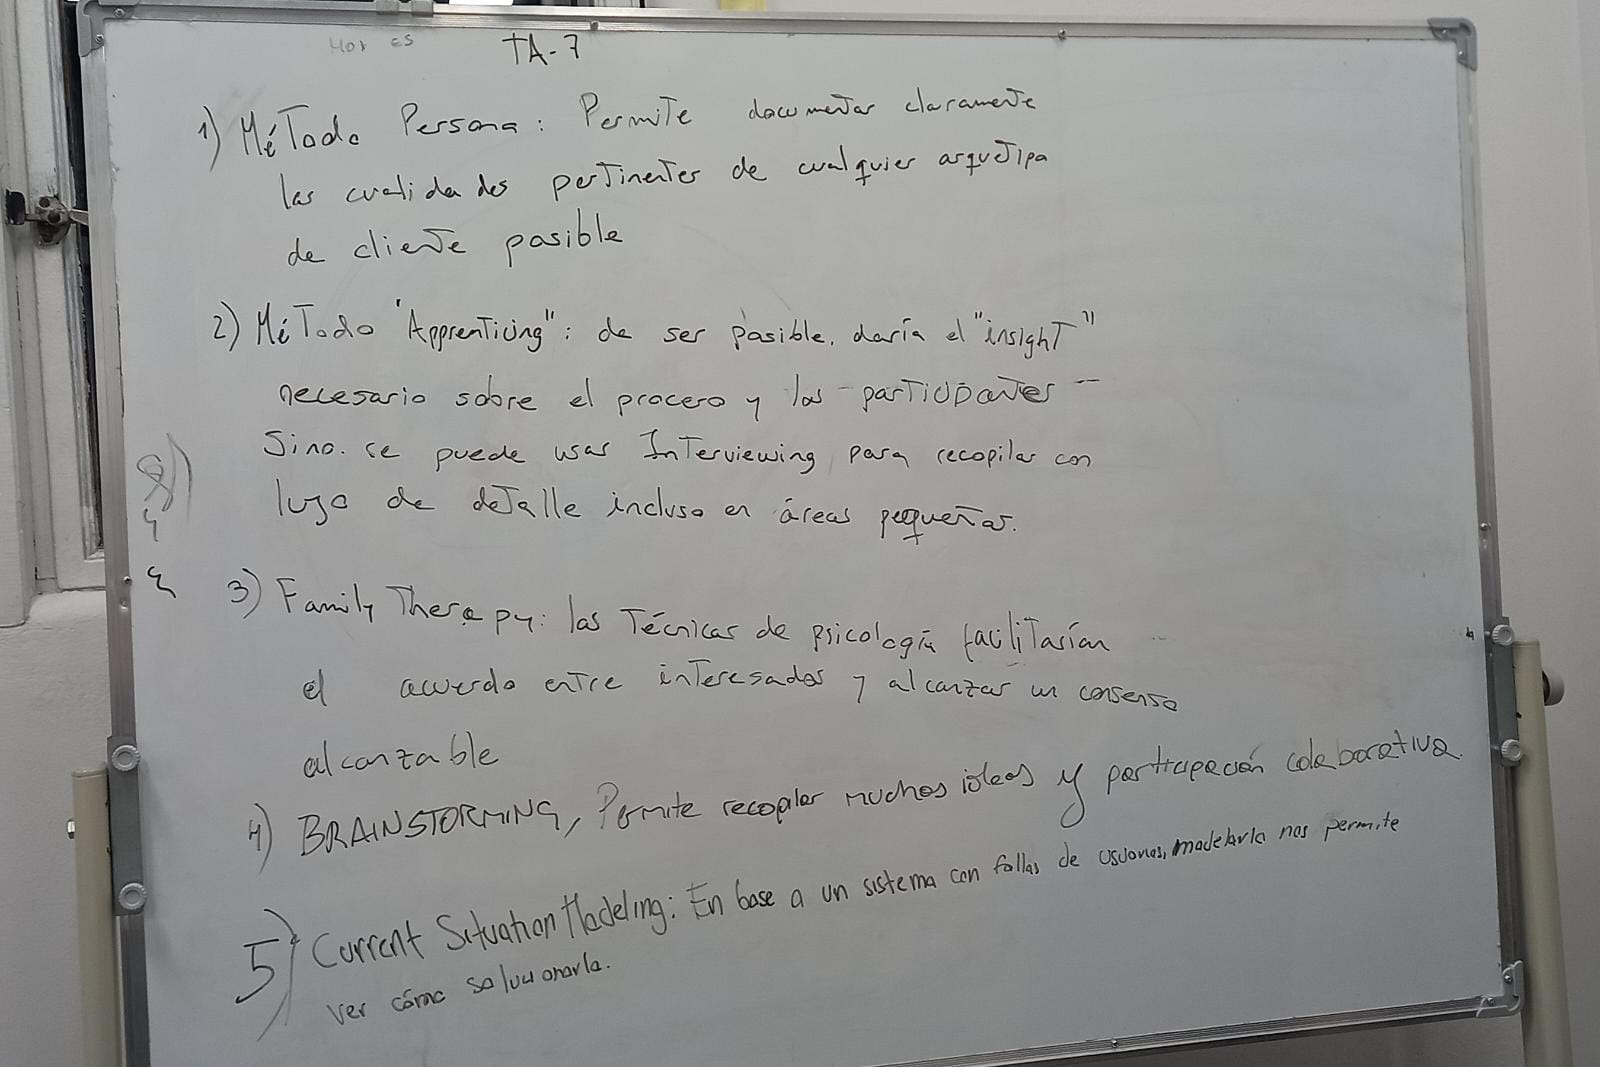 Hoy es
TA-7
1) Método Persona: Permite documentar claramente
las cualidades pertinentes de cualquier arquetipo
de cliente posible
2) Método "Apprenticing": de ser posible, daría el "insight"
necesario sobre el proceso y los participantes
Sino. se puede usar Interviewing para recopilar con
lujo de detalle incluso en áreas pequeñas.
3) Family Therapy: las técnicas de psicología facilitarían
el acuerdo entre interesados y alcanzar un consenso
alcanzable
4) BRAINSTORMING, Permite recopilar muchas ideas y participación colaborativa.
5) Current Situation Modeling: En base a un sistema con fallas de usuarios, modelarla nos permite
ver cómo solucionarla.